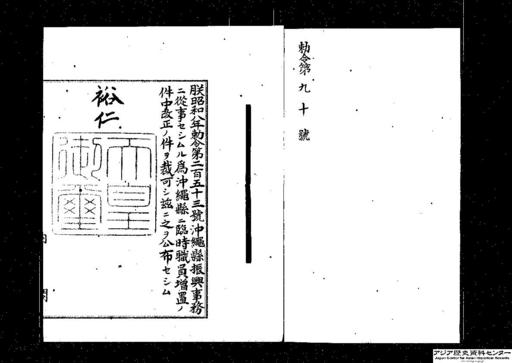 勅令第九十號
朕昭和八年勅令第二百五十三號沖繩縣振興事務
ニ從事セシムル爲沖繩縣ニ臨時職員增置ノ
件中改正ノ件ヲ裁可シ玆ニ之ヲ公布セシム
裕仁
天皇
御璽
內閣
アジア歴史資料センター
Japan Center for Asian Historical Records